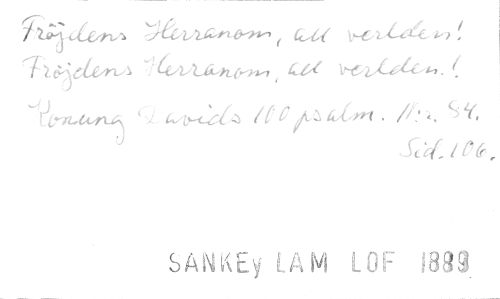 Fröjdens Herranom, all verlden!
Fröjdens Herranom, all verlden!
Konung Davids 100 psalm. N:r. 84.
Sid. 106.
SANKEy LAM LOF 1889